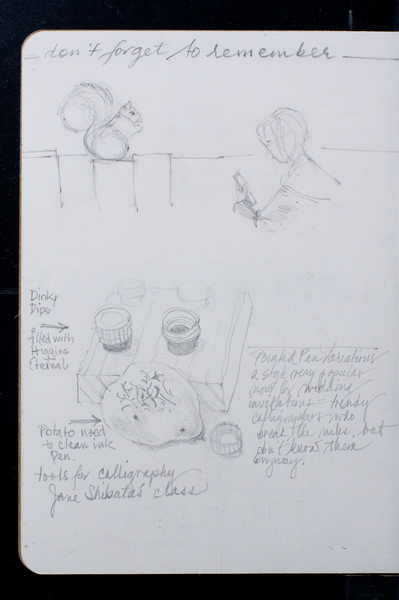 don't forget to remember
Dinky
Dips
filled with
Higgins
Eternal
Potato used
to clean ink
Pen.
tools for calligraphy
Jane Shibata's class
Pointed Pen Variations
a style very popular
now for wedding
invitations – trendy
calligraphers who
break the rules, but
don't know them
anyway.